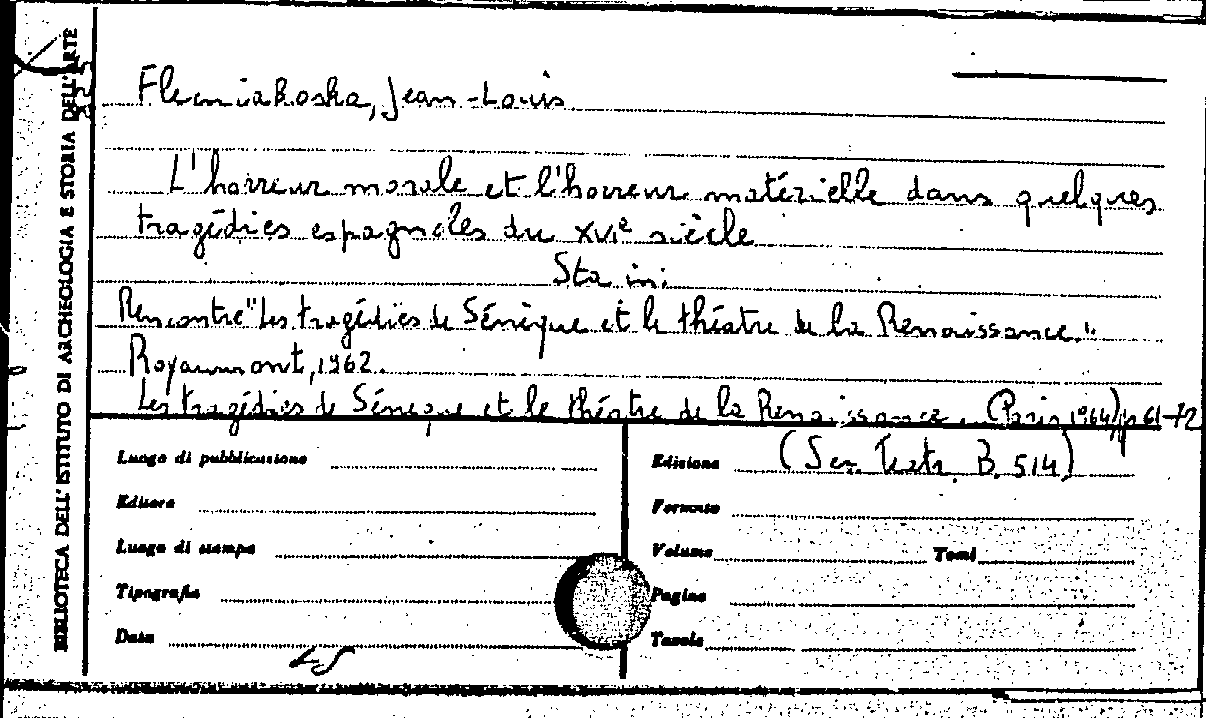 BIBLIOTECA DELL'ISTITUTO DI ARCHEOLOGIA E STORIA DELL'ARTE
Flecniakoska, Jean-Louis
L'horreur morale et l'horreur matérielle dans quelques
tragédies espagnoles du XVIe siècle
Sta in:
Rencontre "Les tragédies de Sénèque et le théatre de la Renaissance."
Royaumont, 1962.
Les tragédies de Sénèque et le théatre de la Renaissance. (Paris 1964) p 61-72
Luogo di pubblicazione
Edizione (Ser. Teatr. B. 514)
Editore
Formato
Luogo di stampa
Volume Tomi
Tipografia
Pagine
Data
Tavole